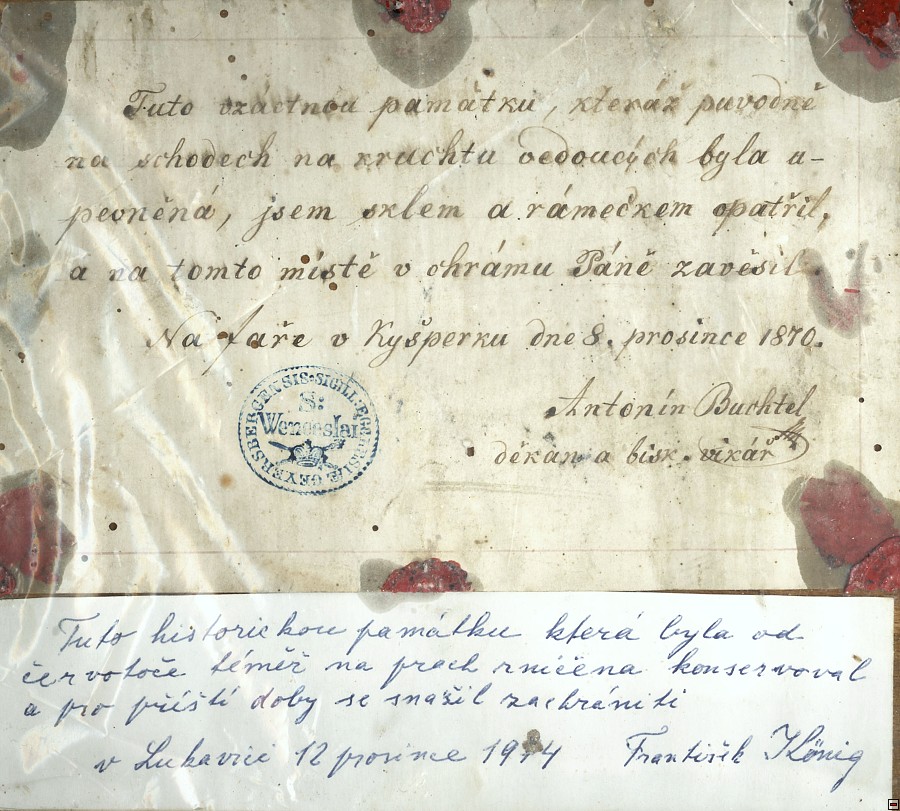 Tuto vzáctnou památku, kteráž puvodně
na schodech na kruchtu vedoucých byla u-
pevněná, jsem sklem a rámečkem opatřil,
a na tomto místě v chrámu Páně zavěsil.
Na faře v Kyšperku dne 8. prosince 1870.
Antonín Buchtel
děkan a bisk. vikář
SIGILL: ECCLESIÆ GEYERSBERGENSIS
S:
Wenceslai
Tuto historickou památku která byla od
červotoče téměř na prach zničena konservoval
a pro příští doby se snažil zachrániti
v Lukavici 12 prosince František König